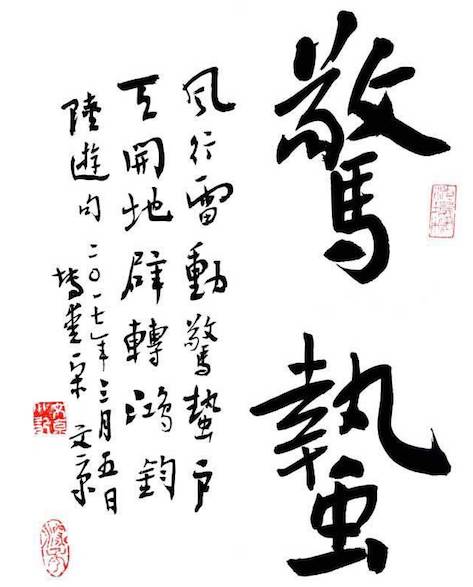 驚蟄
風行雷動驚蟄戶
天開地辟轉鴻鈞
陸遊句 二〇一七年三月五日
宋文京